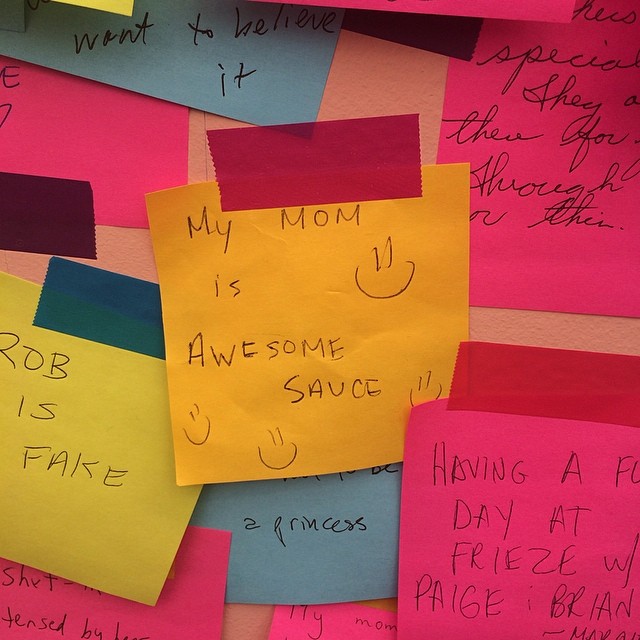 want to believe
it
special
They
there for
through
or them.
My MOM
is
AWESOME
SAUCE
ROB
IS
FAKE
to be
a princess
HAVING A
DAY AT
FRIEZE w/
PAIGE & BRIAN
My mom
tensed by